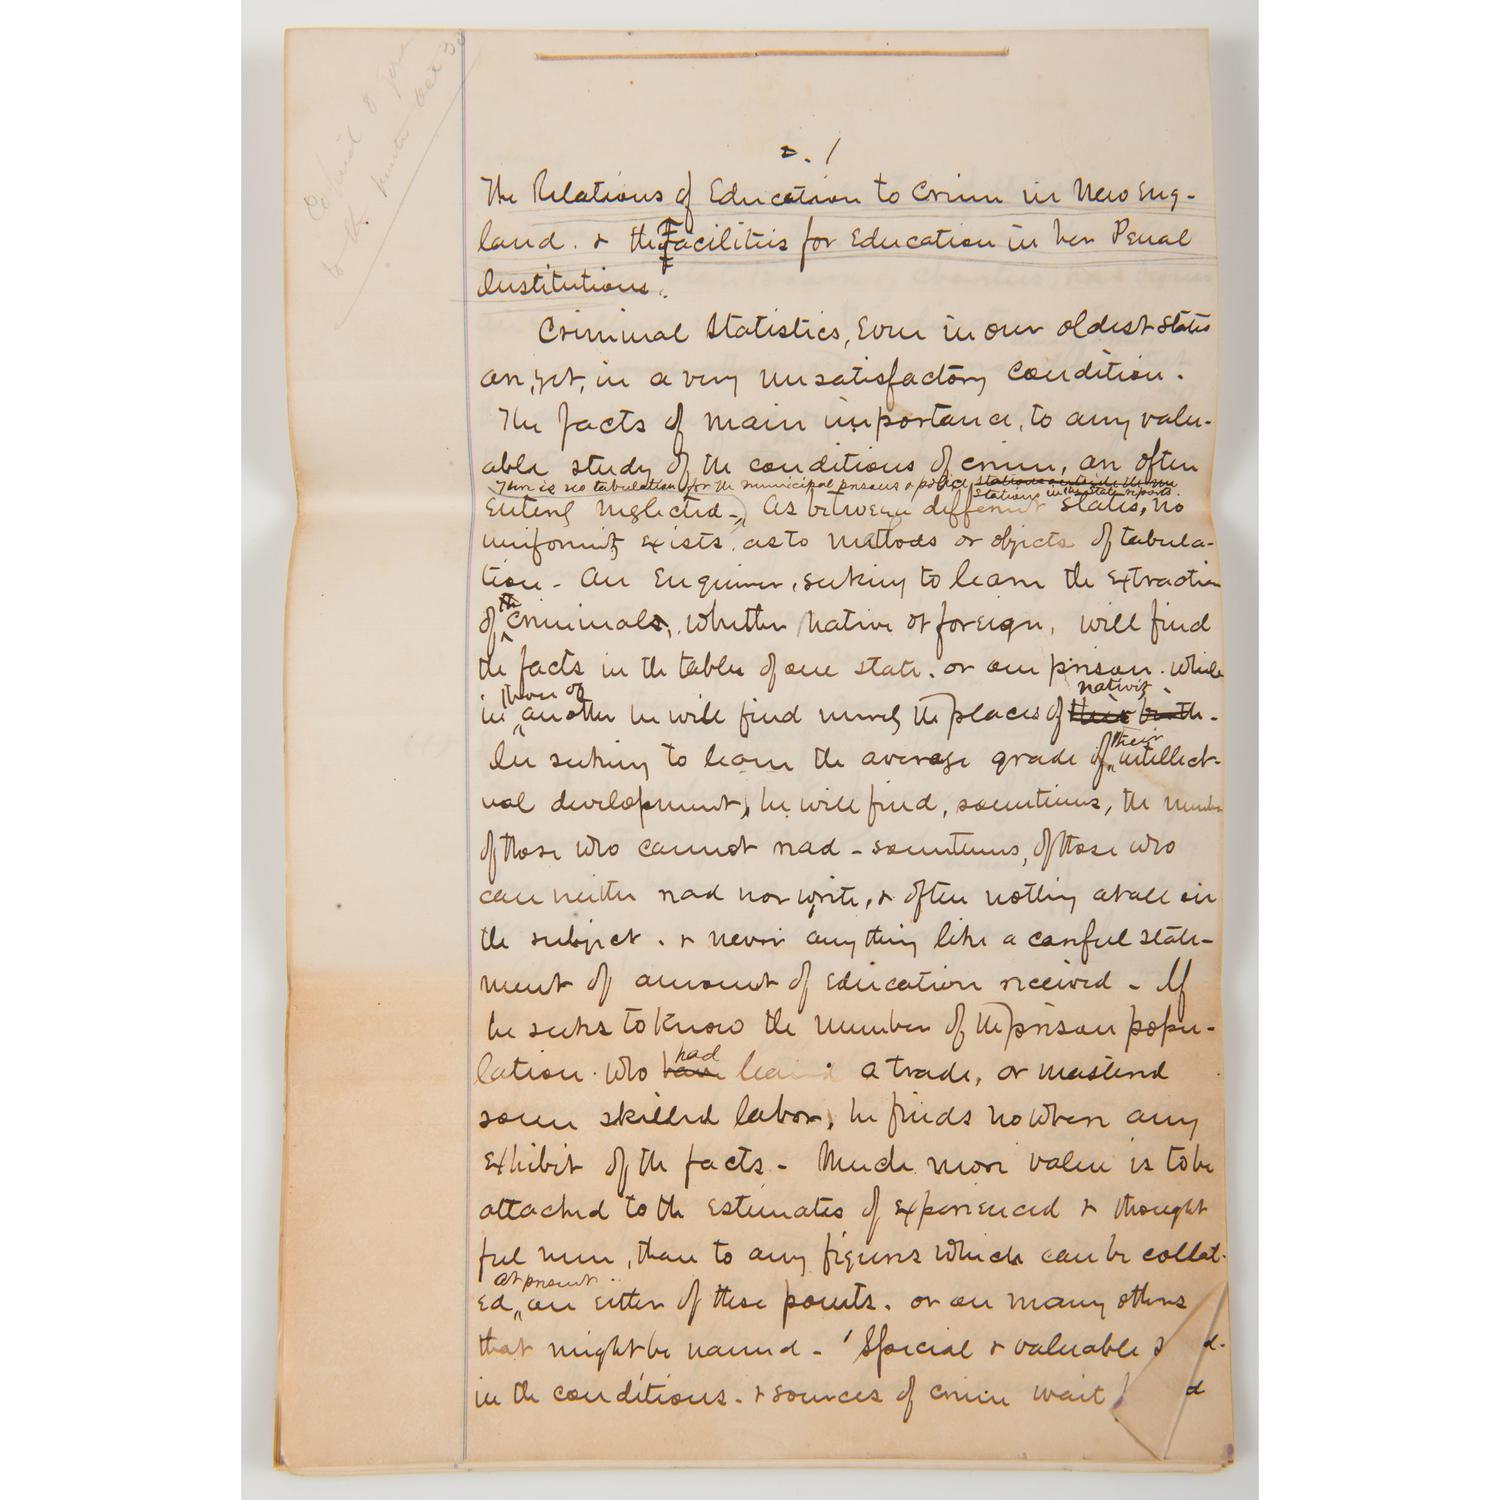 2. 1
The Relations of Education to Crime in New Eng-
land. & the Facilities for Education in her Penal
Institutions.
Criminal Statistics, even in our oldest states
are, yet, in a very unsatisfactory condition.
The facts of main importance, to any valu-
able study of the conditions of crime, are often
There is no tabulation for the municipal prisons & police stations outside the
stations in the state reports.
entirely neglected - As between different states, no
uniformity exists, as to methods or objects of tabula-
tion - An Enquirer, seeking to learn the extraction
the
of criminals, whether native or foreign, will find
the facts in the tables of one state. or one prison. while
those of
in another he will find merely the places of their birth.
nativity.
In seeking to learn the average grade of their intellect-
ual development, he will find, sometimes, the number
of those who cannot read - sometimes, of those who
can neither read nor write, & often nothing at all on
the subject. & never anything like a careful state-
ment of amount of education received - If
he seeks to know the number of the prison popu-
had
lation. who have learned a trade, or mastered
some skilled labor, he finds nowhere any
exhibit of the facts - Much more value is to be
attached to the estimates of experienced & thought
ful men, than to any figures which can be collat-
at present
ed, on either of these points. or on many others
that might be named - Special & valuable
in the conditions. & sources of crime wait